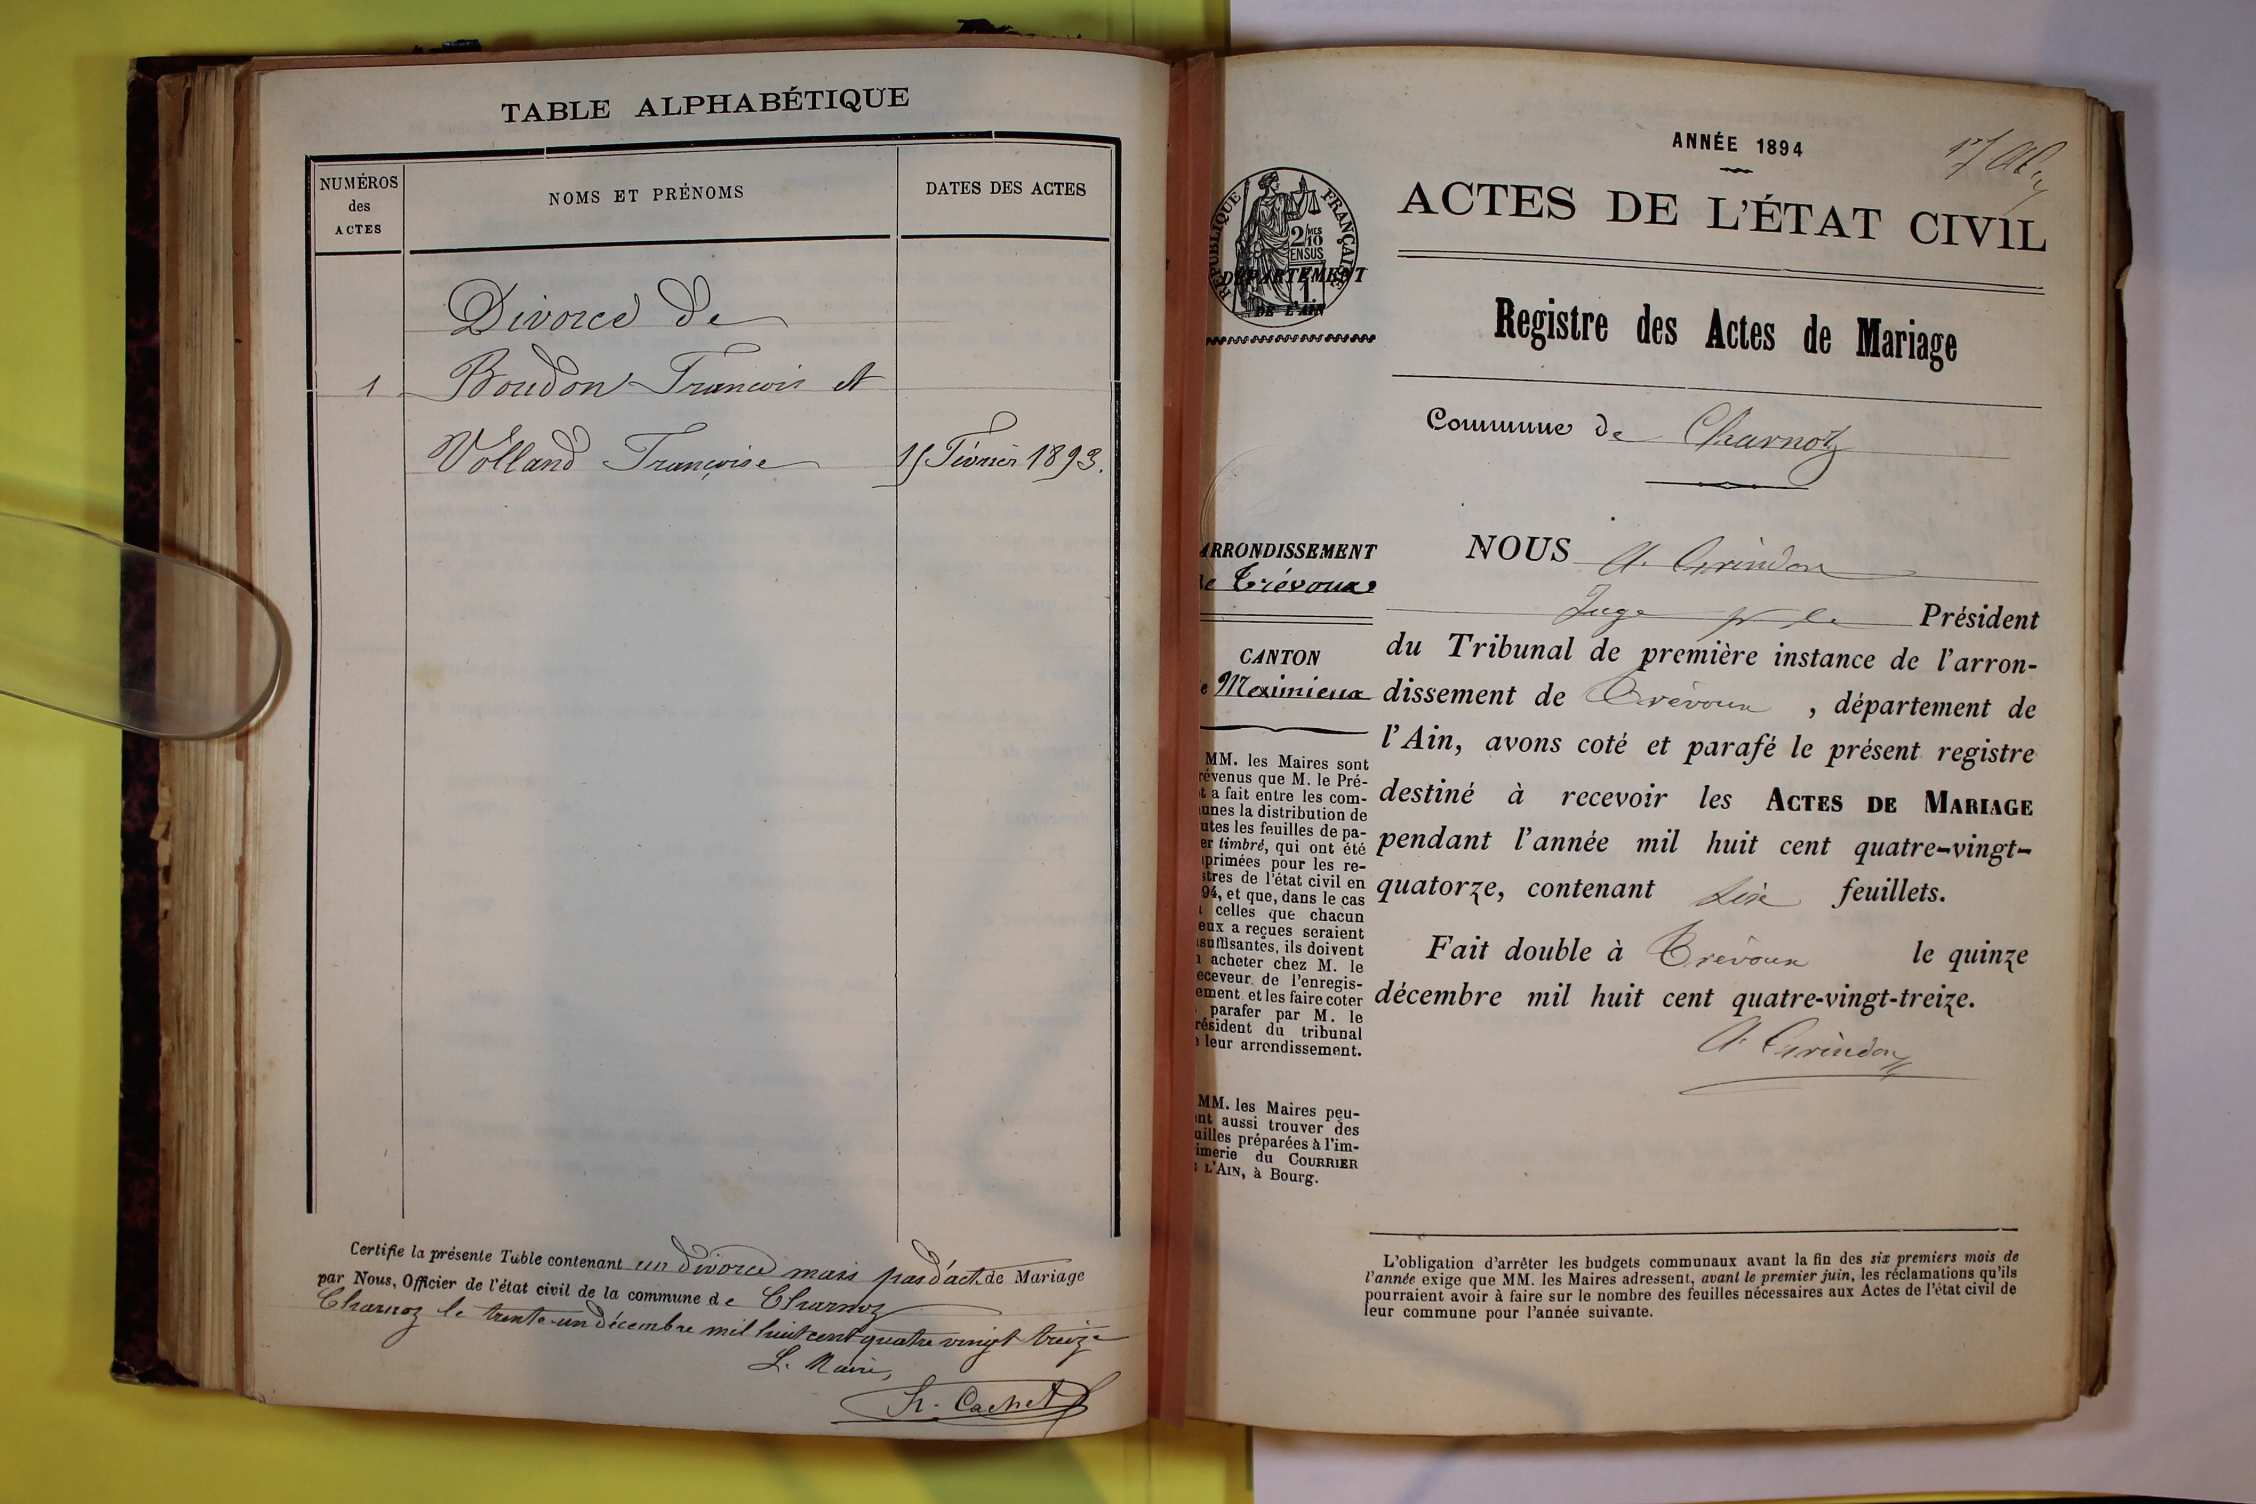 TABLE ALPHABÉTIQUE
NUMÉROS
des
ACTES
NOMS ET PRÉNOMS
DATES DES ACTES
Divorce de
1 Boudon François et
Volland Françoise 15 Février 1893.
Certifie la présente Table contenant un divorce mais pas d'act. de Mariage
par Nous, Officier de l'état civil de la commune de Charnoz
Charnoz le trente-un décembre mil huit cent quatre vingt treize
L. Maire,
h. Cachet
ANNÉE 1894
ACTES DE L'ÉTAT CIVIL
RÉPUBLIQUE FRANÇAISE
2/10MES
EN SUS
1.
DÉPARTEMENT
DE L'AIN
Registre des Actes de Mariage
Commune de Charnoz
ARRONDISSEMENT
de Trévoux
CANTON
de Meximieux
MM. les Maires sont
révenus que M. le Pré-
t a fait entre les com-
unes la distribution de
utes les feuilles de pa-
er timbré, qui ont été
primées pour les re-
stres de l'état civil en
94, et que, dans le cas
celles que chacun
eux a reçues seraient
suffisantes, ils doivent
acheter chez M. le
eceveur de l'enregis-
ement et les faire coter
parafer par M. le
résident du tribunal
leur arrondissement.
MM. les Maires peu-
ent aussi trouver des
uilles préparées à l'im-
imerie du COURRIER
L'AIN, à Bourg.
NOUS A. Grindon
Juge pr le Président
du Tribunal de première instance de l'arron-
dissement de Trévoux, département de
l'Ain, avons coté et parafé le présent registre
destiné à recevoir les ACTES DE MARIAGE
pendant l'année mil huit cent quatre-vingt-
quatorze, contenant six feuillets.
Fait double à Trévoux le quinze
décembre mil huit cent quatre-vingt-treize.
A. Grindon
L'obligation d'arrêter les budgets communaux avant la fin des six premiers mois de
l'année exige que MM. les Maires adressent, avant le premier juin, les réclamations qu'ils
pourraient avoir à faire sur le nombre des feuilles nécessaires aux Actes de l'état civil de
leur commune pour l'année suivante.